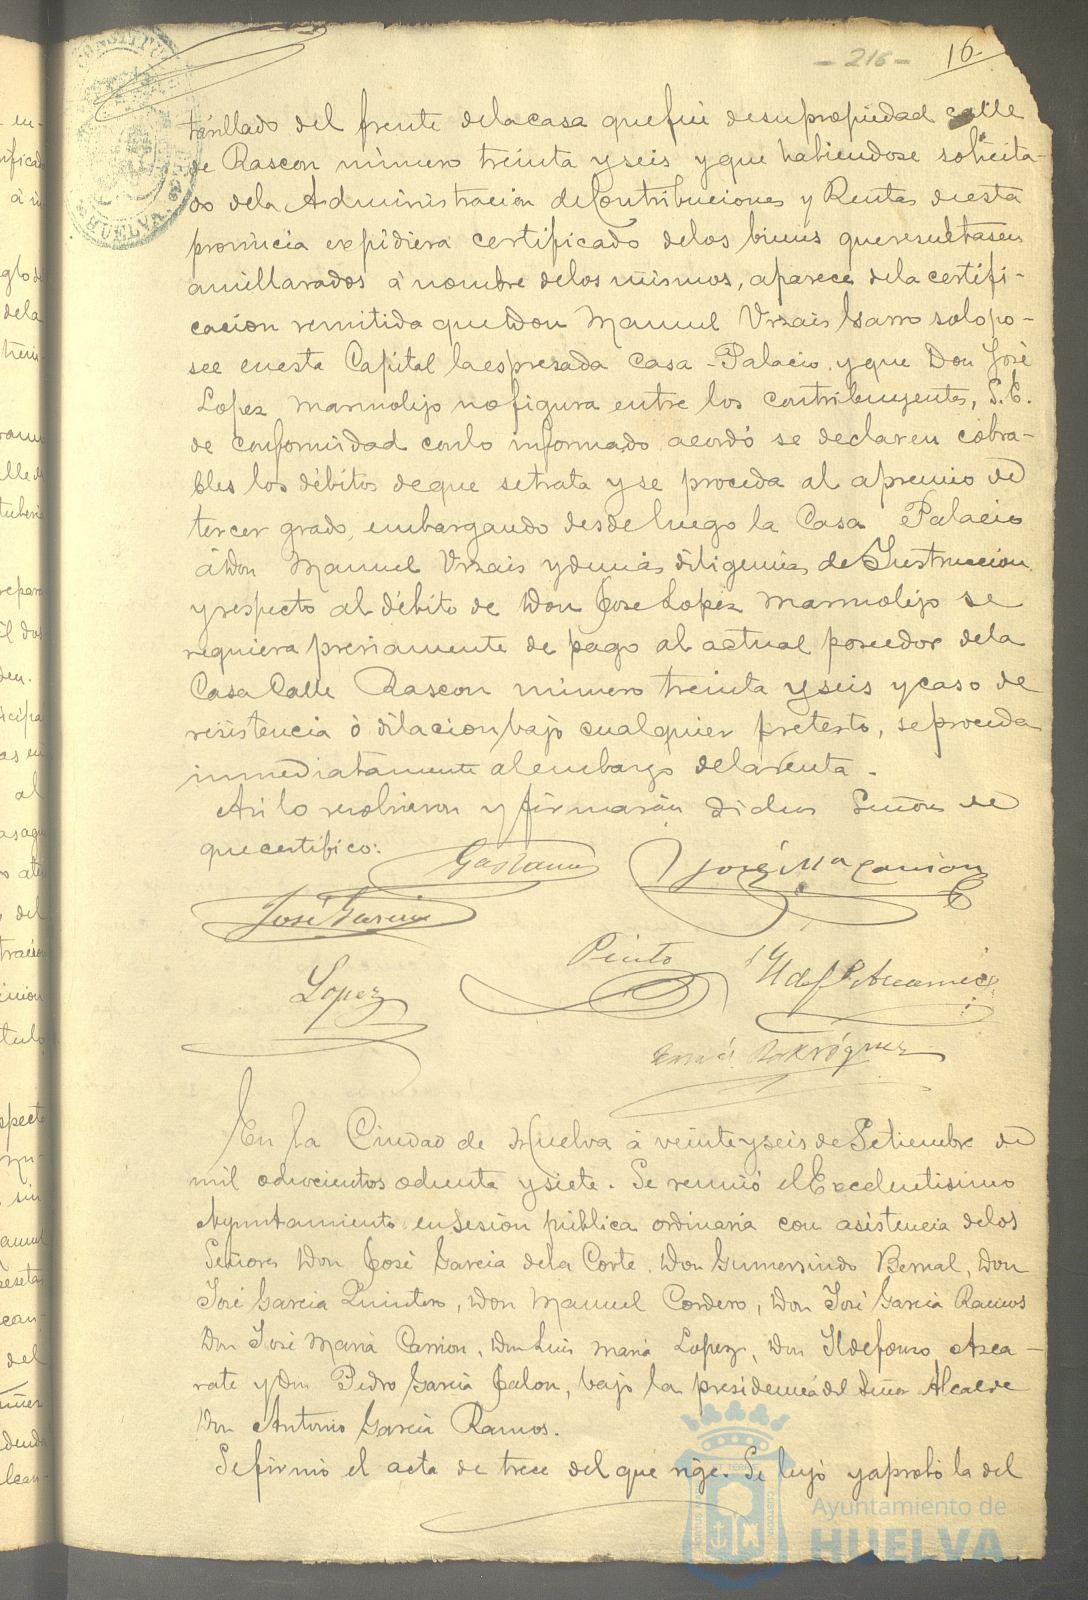 - 216 -
16
del frente dela casa que fué desu propiedad calle
de Rascon número treinta y seis y que habiendose solicita-
do dela Administracion de Contribuciones y Rentas de esta
provincia expidiera certificado delos bienes que resultasen
amillarados á nombre delos mismos, aparece dela certifi-
cacion remitida que Don Manuel Urzais Garro solo po-
see en esta Capital la espresada Casa-Palacio y que Don José
Lopez Marmolejo no figura entre los contribuyentes, S.E.
de conformidad con lo informado acordó se declaren cobra-
bles los débitos de que se trata y se proceda al apremio de
tercer grado, embargando desde luego la Casa Palacio
á Don Manuel Urzais y demas diligencias de Instruccion
y respecto al débito de Don Jose Lopez Marmolejo se
requiera previamente de pago al actual poseedor dela
Casa Calle Rascon número treinta y seis y caso de
resistencia ó dilacion bajo cualquier pretesto, se proceda
inmediatamente al embargo dela renta.
Asi lo resolvieron y firmarán dichos Señores de
que certifico:
José Mª Carrion
José Garcia
Pinto
Lopez
Ildefº Azcarate
Rodriguez
En la Ciudad de Huelva á veinte y seis de Setiembre de
mil ochocientos ochenta y siete. Se reunió el Excelentisimo
Ayuntamiento en sesion pública ordinaria con asistencia delos
Señores Don José Garcia dela Corte, Don Gumersindo Bernal, Don
José Garcia Quintero, Don Manuel Cordero, Don José Garcia Ramos
Don José Maria Carrion, Don Luis Maria Lopez, Don Ildefonso Azca-
rate y Don Pedro Garcia Jalon, bajo la presidencia del Señor Alcalde
Don Antonio Garcia Ramos.
Se firmó el acta de trece del que rige. Se leyó y aprobó la del
Ayuntamiento de
HUELVA